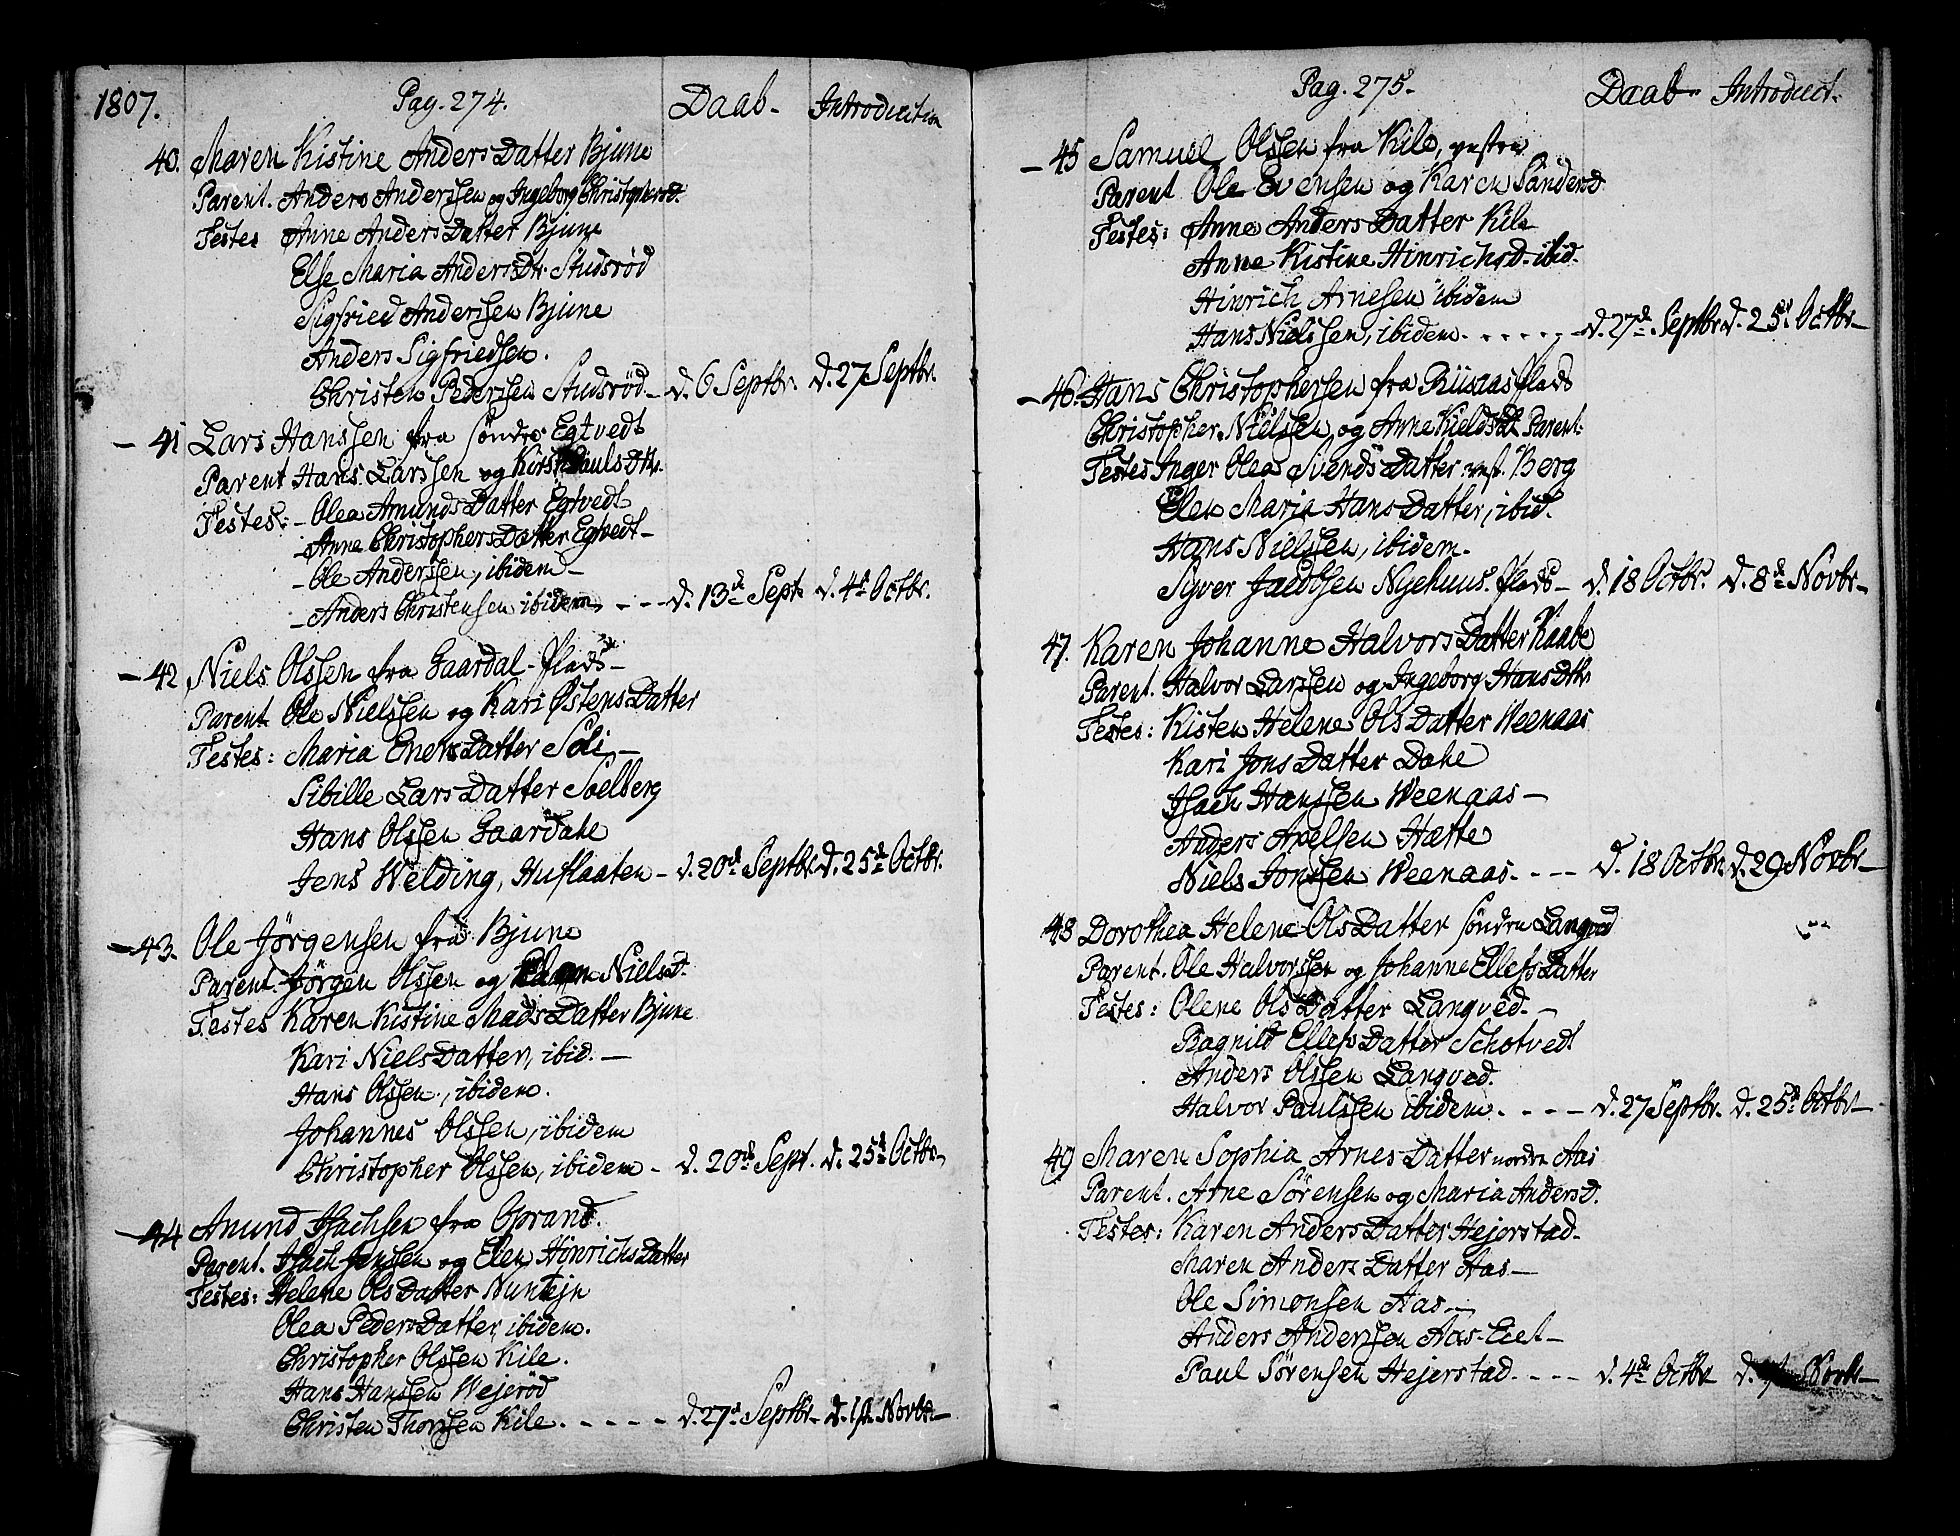 1807. Pag. 274. Daab- Introduction
40. Maren Kistine Anders Datter Bjune
Parent. Anders Anderssen og Ingeborg Christophersd.
Testes Anne Anders Datter Bjune
Else Maria Anders Dtr. Studsröd
Sigfried Anderssen Bjune
Anders Sigfriedsen.
Christen Pederssen Studsröd - d. 6 Septbr. d. 27 Septbr.
- 41 Lars Hanssen fra söndre Egtvedt
Parent Hans Larssen og Pauls Dtr.
Testes: - Olea Amunds Datter Egtvedt
- Anne Christophers Datter Egtvedt -
- Ole Anderssen, ibidem -
- Anders Christensen ibidem - - - d. 13de Sept. d. 4de Octbr.
- 42 Niels Olssen fra Gaardal-Plads -
Parent Ole Nielssen og Kari Østens Datter
Testes: Maria Eners Datter Soli -
Sibille Lars Datter Soelberg
Hans Olssen Gaardahe
Jens Welding, Huflaaten - d. 20de Septbr. d. 25de Octbr.
- 43. Ole Jörgensen fra Bjune
Parent. Jörgen Olssen og Niels D.
Testes Karen Kistine Mads Datter Bjune
Kari Niels Datter, ibid. -
Hans Olssen, ibidem.
Johannes Olssen, ibidem
Christopher Olssen, ibidem - d. 20de Sept. d. 25de Octbr.
- 44 Amund Isachsen fra Oprand.
Parent. Isach Jenssen og Elen Hinrichs Datter
Testes: Helene Ols Datter Nuntejn
Olea Peders Datter, ibidem.
Christopher Olssen Kile.
Hans Hanssen Wejeröd
Christen Thorssen Kile. - - - - - d. 27de Septbr. d. 1st Novbr. -
Pag. 275. Daab- Introduct.
- 45 Samuel Olssen fra Kile, vestre
Parent Ole Evensen og Karen Sanders D.
Testes: Anne Anders Datter Kile
Anne Kistine Hinrichsd. ibid.
Hinrich Arnesen ibidem
Hans Nielssen, ibidem. - - - - - d. 27de Septbr. d. 25de Octbr. -
- 46. Hans Christophersen fra Riisaas plads
Christopher Nielsen og Anne Kields D. Parent.
Testes Inger Olea Svends Datter vest. Berg
Elen Maria Hans Datter, ibid.
Hans Nielssen, ibidem.
Syver Jacobsen Nyehuus. plads - d. 18 Octbr. d. 8de Novbr. -
47. Karen Johanne Halvors Datter Raabe
Parent. Halvor Larssen og Ingeborg Hans Dtr.
Testes: Kisten Helene Ols Datter Weenaas
Kari Jons Datter Dahe
Isach Hanssen Weenaas -
Anders Axelsen Hætte
Niels Jonssen Weenaas. - - - d. 18 Octbr. d. 29 Novbr. -
48 Dorothea Helene Ols Datter söndre Langved
Parent. Ole Halvorssen og Johanne Ellefs Datter
Testes: Olene Ols Datter Langved. -
Ragnild Ellefs Datter Schotvedt
Anders Olssen Langved.
Halvor Paulssen ibidem. - - - d. 27 Septbr. d. 25de Octbr. -
49 Maren Sophia Arnes Datter nordre Aas
Parent. Arne Sörensen og Maria Anders D.
Testes: Karen Anders Datter Hejerstad -
Maren Anders Datter Aas -
Ole Simonsen Aas -
Anders Anderssen Aas-Eiet -
Paul Sörensen Hejerstad. - - - d. 4de Octbr d. Novbr. -